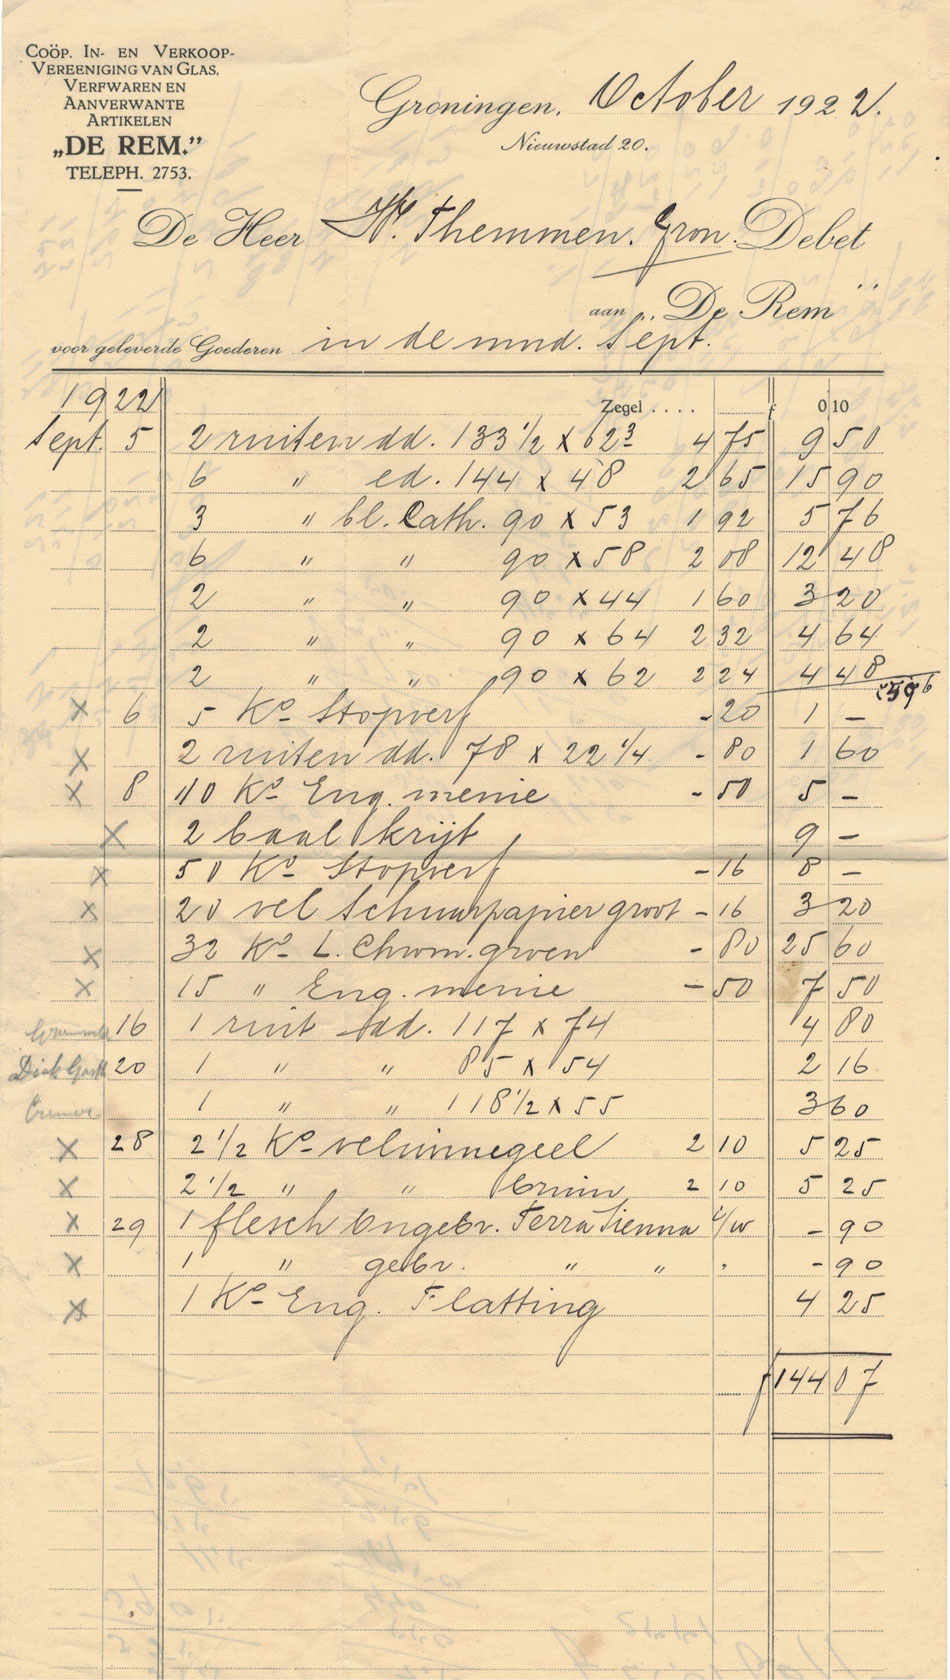 COÖP. IN- EN VERKOOP-
VEREENIGING VAN GLAS.
VERFWAREN EN
AANVERWANTE
ARTIKELEN
„DE REM.”
TELEPH. 2753.
Groningen, October 1922.
Nieuwstad 20.
De Heer W. Themmen. Gron. Debet
aan „De Rem”
voor geleverde Goederen in de mnd. Sept.
1922 Zegel . . . . f 0 10
Sept. 5 2 ruiten dd. 133 1/2 x 62 3 4 75 9 50
6 " ed. 144 x 48 2 65 15 90
3 " bl. Cath. 90 x 53 1 92 5 76
6 " " 90 x 58 2 08 12 48
2 " " 90 x 44 1 60 3 20
2 " " 90 x 64 2 32 4 64
2 " " 90 x 62 2 24 4 48
x 6 5 Ko Stopverf - 20 1 -
x 2 ruiten dd. 78 x 22 1/4 - 80 1 60
x 8 10 Ko Eng. menie - 50 5 -
x 2 baal krijt 9 -
x 50 Ko Stopverf - 16 8 -
x 20 vel Schuurpapier groot - 16 3 20
x 32 Ko L. Chrom. groen - 80 25 60
x 15 " Eng. menie - 50 7 50
16 1 ruit dd. 117 x 74 4 80
20 1 " " 85 x 54 2 16
1 " " 118 1/2 x 55 3 60
x 28 2 1/2 Ko veluinnegeel 2 10 5 25
x 2 1/2 " " bruin 2 10 5 25
x 29 1 flesch Ongebr. Terra Sienna i/w - 90
x 1 " gebr. " " " - 90
x 1 Ko Eng. Flatting 4 25
f 144 07